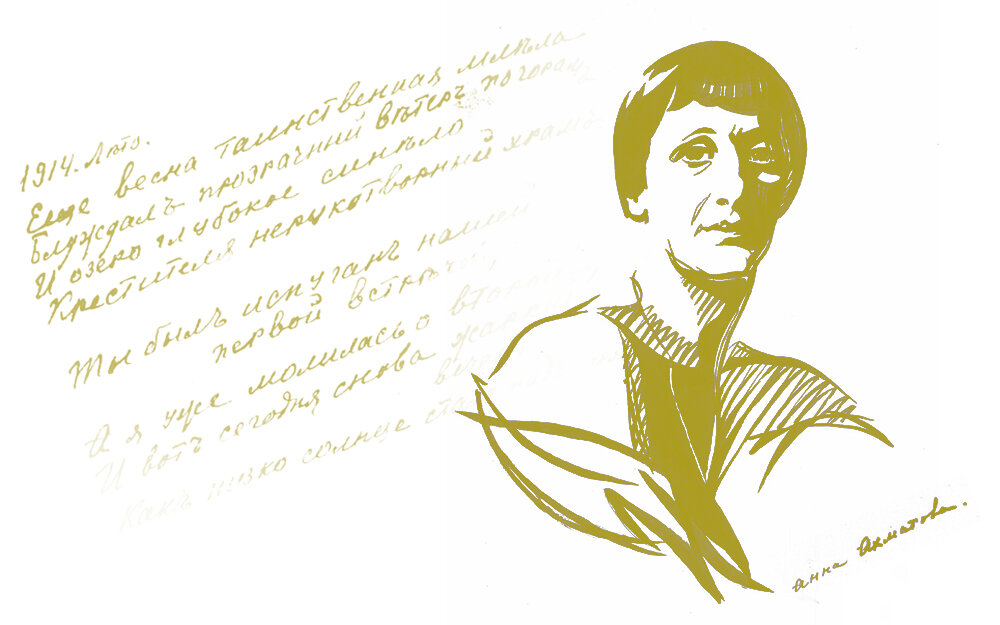 1914. Лѣто.
Еще весна таинственная млѣла
Блуждалъ прозрачный вѣтеръ по горамъ
И озеро глубокое синѣло
Крестителя нерукотворный храмъ
Ты былъ испуганъ нашей
первой встрѣчей,
А я уже молилась о второй,
И вотъ сегодня снова жаркій
вечеръ
Какъ низко солнце ста
Анна Ахматова.